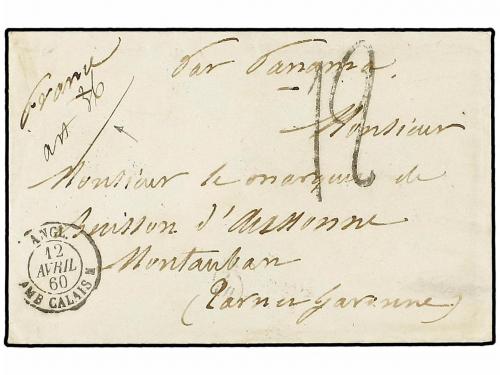 France
art 36
Par Panama.
12
Monsieur
Monsieur le marquis de
Buisson d'Aussonne
Montauban
(Tarn et Garonne)
ANGL.
12
AVRIL
60
AMB CALAIS M